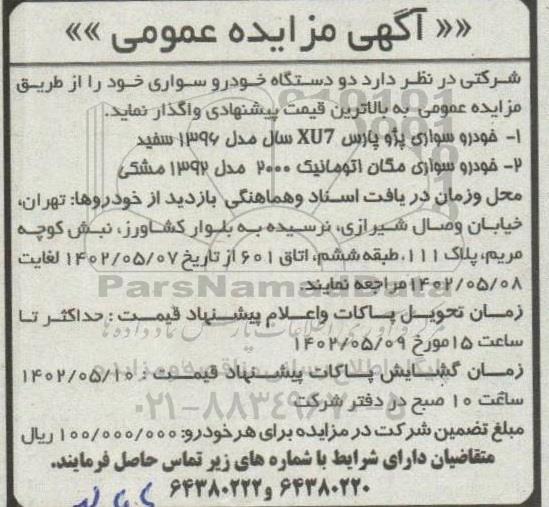 «« آگهی مزایده عمومی »»
شرکتی در نظر دارد دو دستگاه خودرو سواری خود را از طریق
مزایده عمومی به بالاترین قیمت پیشنهادی واگذار نماید.
۱- خودرو سواری پژو پارس XU7 سال مدل ۱۳۹۶ سفید
۲- خودرو سواری مگان اتوماتیک ۲۰۰۰ مدل ۱۳۹۲ مشکی
محل وزمان در یافت اسناد وهماهنگی بازدید از خودروها: تهران،
خیابان وصال شیرازی، نرسیده به بلوار کشاورز، نبش کوچه
مریم، پلاک ۱۱۱، طبقه ششم، اتاق ۶۰۱ از تاریخ ۱۴۰۲/۰۵/۰۷ لغایت
۱۴۰۲/۰۵/۰۸ مراجعه نمایند.
ParsNamadData
زمان تحویل پاکات واعلام پیشنهاد قیمت : حداکثر تا
ساعت ۱۵ مورخ ۱۴۰۲/۰۵/۰۹
زمان گشایش پاکات پیشنهاد قیمت : ۱۴۰۲/۰۵/۱۰
ساعت ۱۰ صبح در دفتر شرکت
۰۲۱-۸۸۳۴۹۶۷۰-۵
مبلغ تضمین شرکت در مزایده برای هر خودرو: ۱۰۰/۰۰۰/۰۰۰ ریال
متقاضیان دارای شرایط با شماره های زیر تماس حاصل فرمایند.
۶۴۳۸۰۲۲۰ و ۶۴۳۸۰۲۲۲